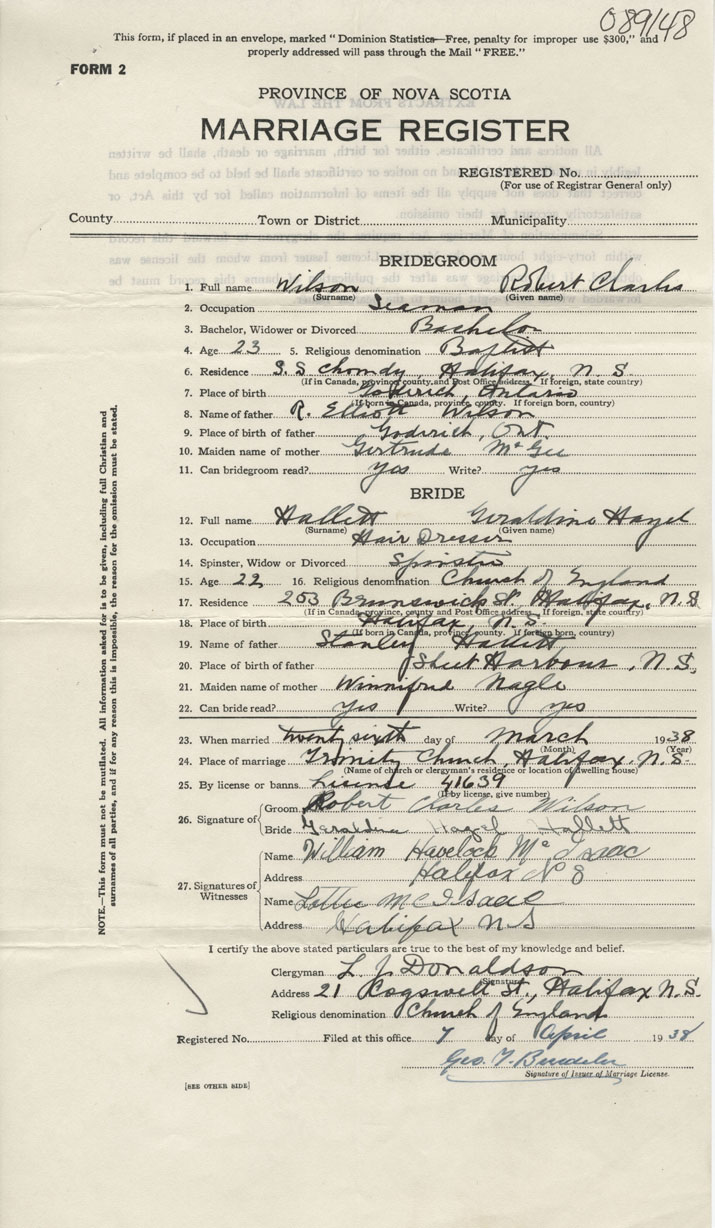 089148
This form, if placed in an envelope, marked "Dominion Statistics—Free, penalty for improper use $300," and
properly addressed will pass through the Mail "FREE."
FORM 2
PROVINCE OF NOVA SCOTIA
MARRIAGE REGISTER
REGISTERED No.
(For use of Registrar General only)
County Town or District Municipality
BRIDEGROOM
1. Full name Wilson Robert Charles
(Surname) (Given name)
2. Occupation Seaman
3. Bachelor, Widower or Divorced Bachelor
4. Age 23 5. Religious denomination Baptist
6. Residence S.S. Chomdy, Halifax, N.S.
(If in Canada, province county and Post Office address. If foreign, state country)
7. Place of birth Goderich, Ontario
(If born in Canada, province, county. If foreign born, country)
8. Name of father R. Elliott Wilson
9. Place of birth of father Goderich, Ont.
10. Maiden name of mother Gertrude McGee
11. Can bridegroom read? Yes Write? yes
BRIDE
12. Full name Hallett Geraldine Hazel
(Surname) (Given name)
13. Occupation Hair Dresser
14. Spinster, Widow or Divorced Spinster
15. Age 22 16. Religious denomination Church of England
17. Residence 253 Brunswick St. Halifax, N.S.
(If in Canada, province, county and Post Office address. If foreign, state country)
18. Place of birth Halifax, N.S.
(If born in Canada, province, county. If foreign born, country)
19. Name of father Stanley Hallett
20. Place of birth of father Sheet Harbour, N.S.
21. Maiden name of mother Winnifred Nagle
22. Can bride read? yes Write? yes
23. When married twenty sixth day of March 1938
(Month) (Year)
24. Place of marriage Trinity Church, Halifax, N.S.
(Name of church or clergyman's residence or location of dwelling house)
25. By license or banns License 41639
(If by license, give number)
26. Signature of Groom Robert Charles Wilson
Bride Geraldine Hazel Hallett
27. Signatures of Witnesses
Name William Havelock McIsaac
Address Halifax N S
Name Lottie McIsaac
Address Halifax N S
I certify the above stated particulars are true to the best of my knowledge and belief.
Clergyman L. J. Donaldson
Signature
Address 21 Cogswell St., Halifax N.S.
Religious denomination Church of England
Registered No. Filed at this office 7 day of April 1938
Geo. T.
Signature of Issuer of Marriage License.
[SEE OTHER SIDE]
NOTE.—This form must not be mutilated. All information asked for is to be given, including full Christian and
surnames of all parties, and if for any reason this is impossible, the reason for the omission must be stated.